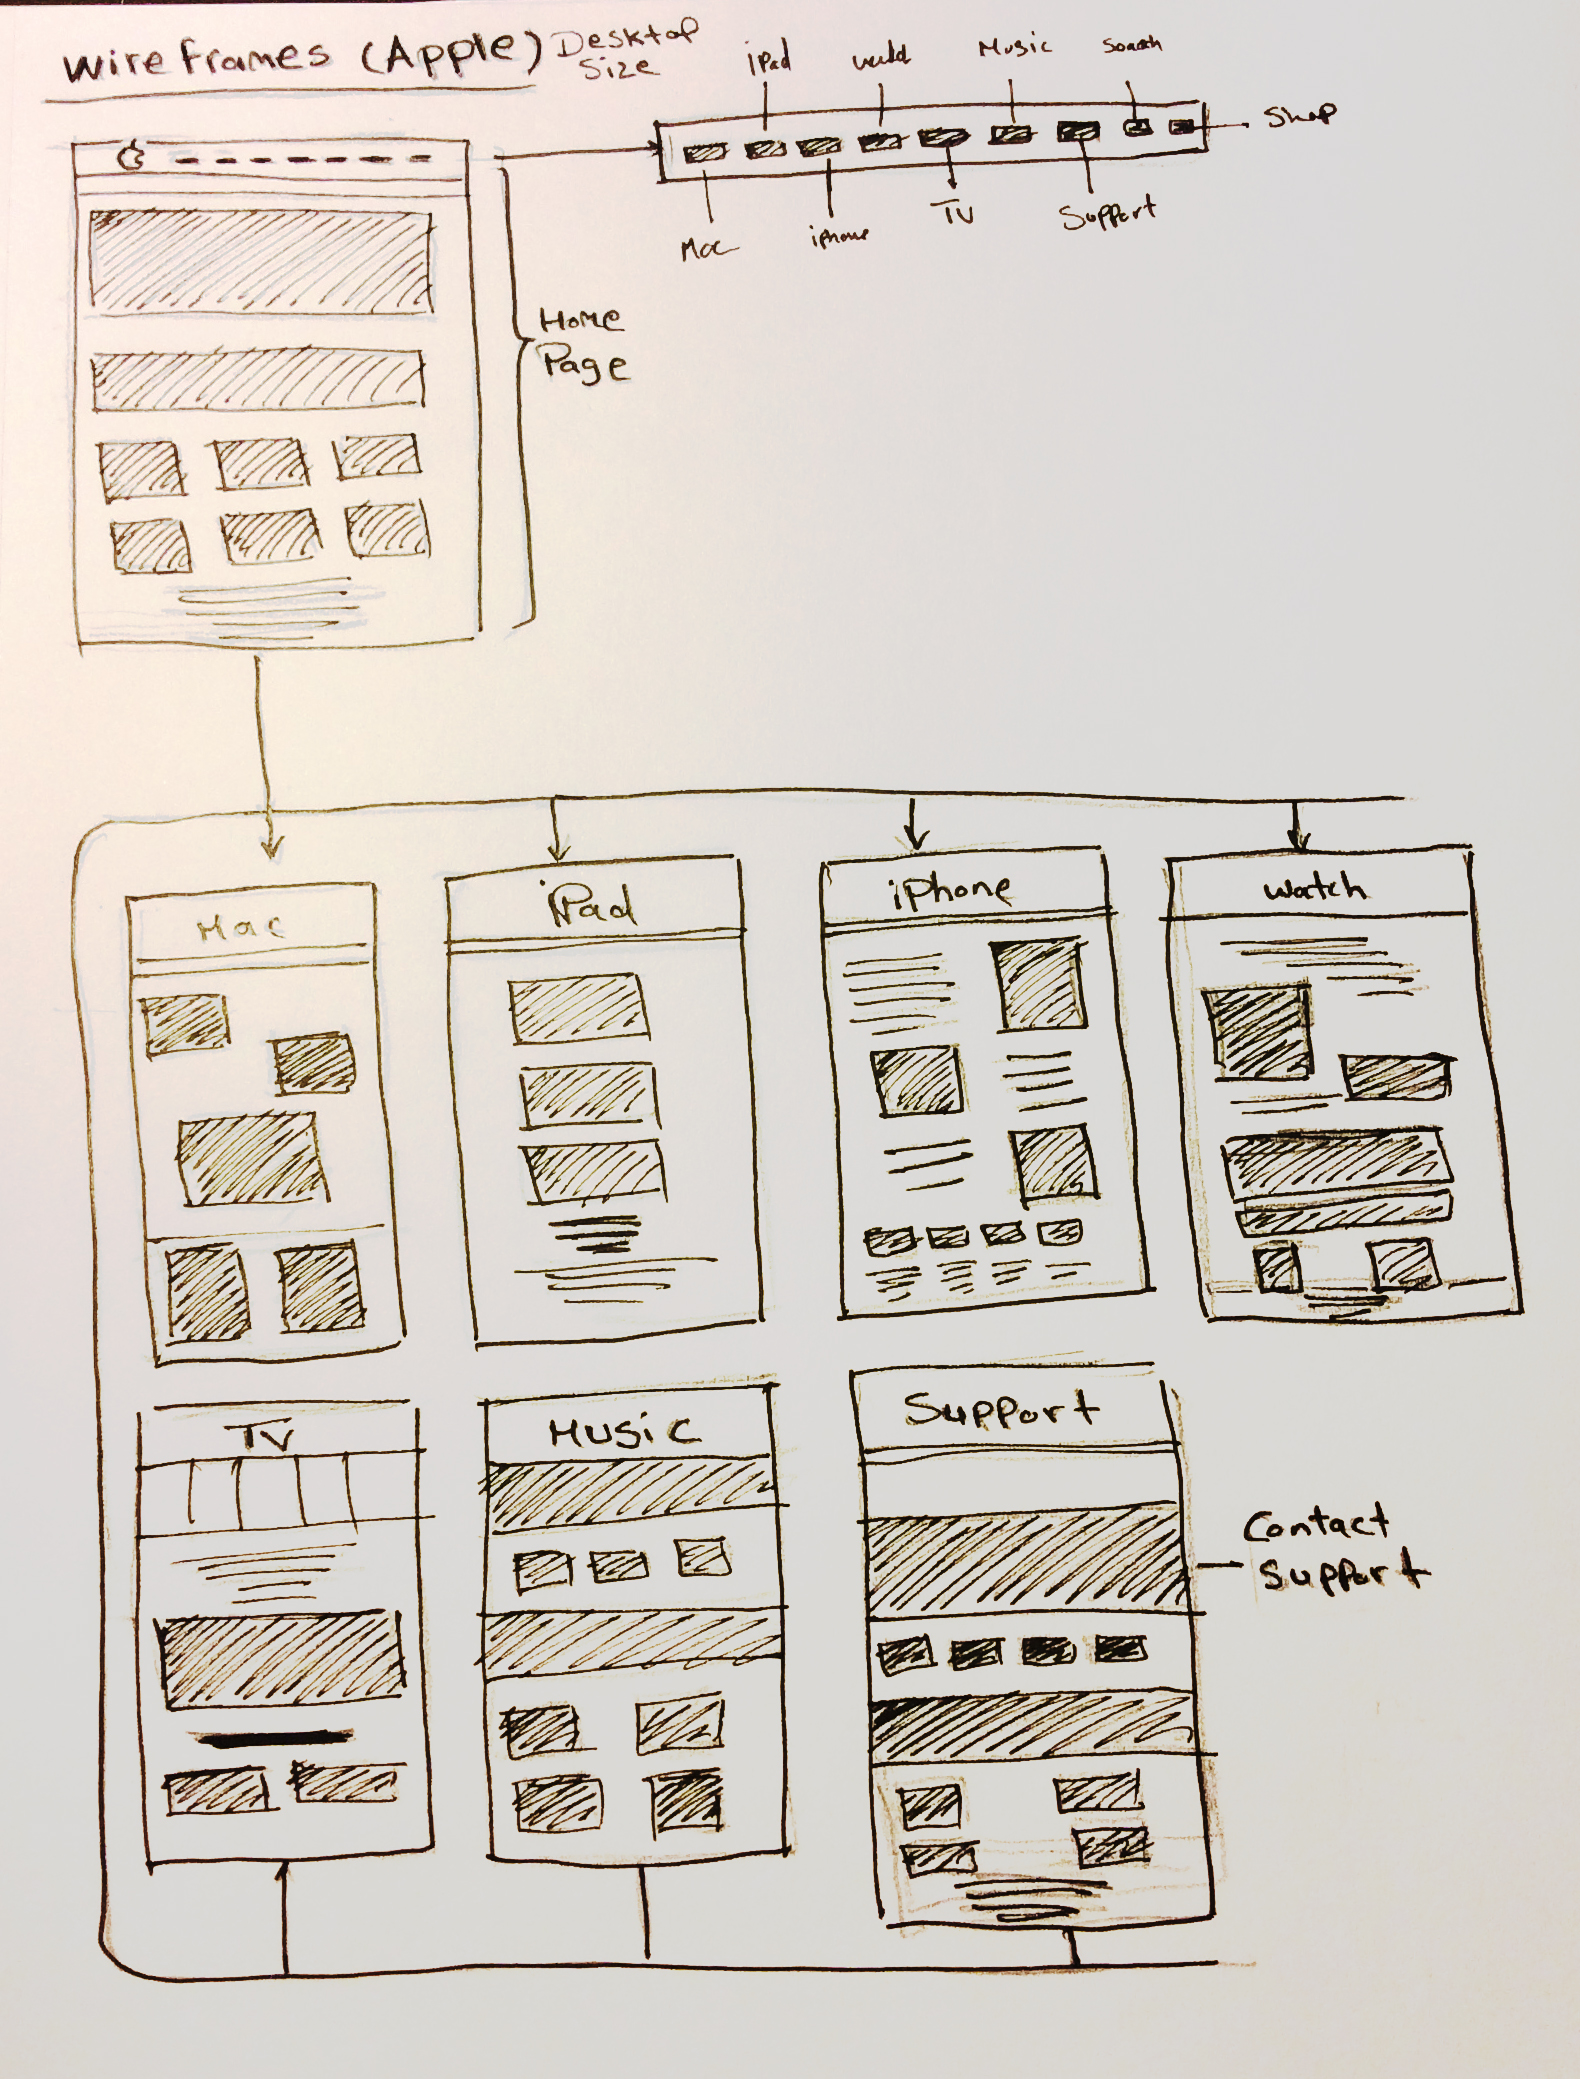 Wireframes (Apple)
Desktop
Size
iPad
Music
Shop
Mac
iphone
TV
Support
Home
Page
Mac
iPad
iPhone
watch
TV
Music
Support
Contact
Support